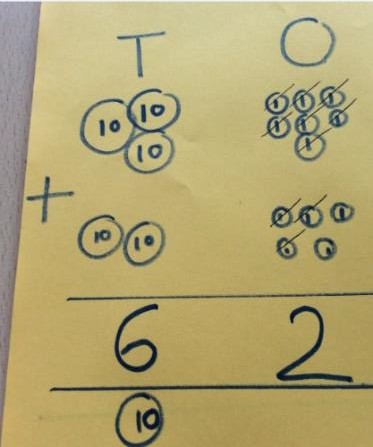 T O
10 10 1 1 1
1 1 1
10 1
+
10 10 1 1 1
1 1
6 2
10